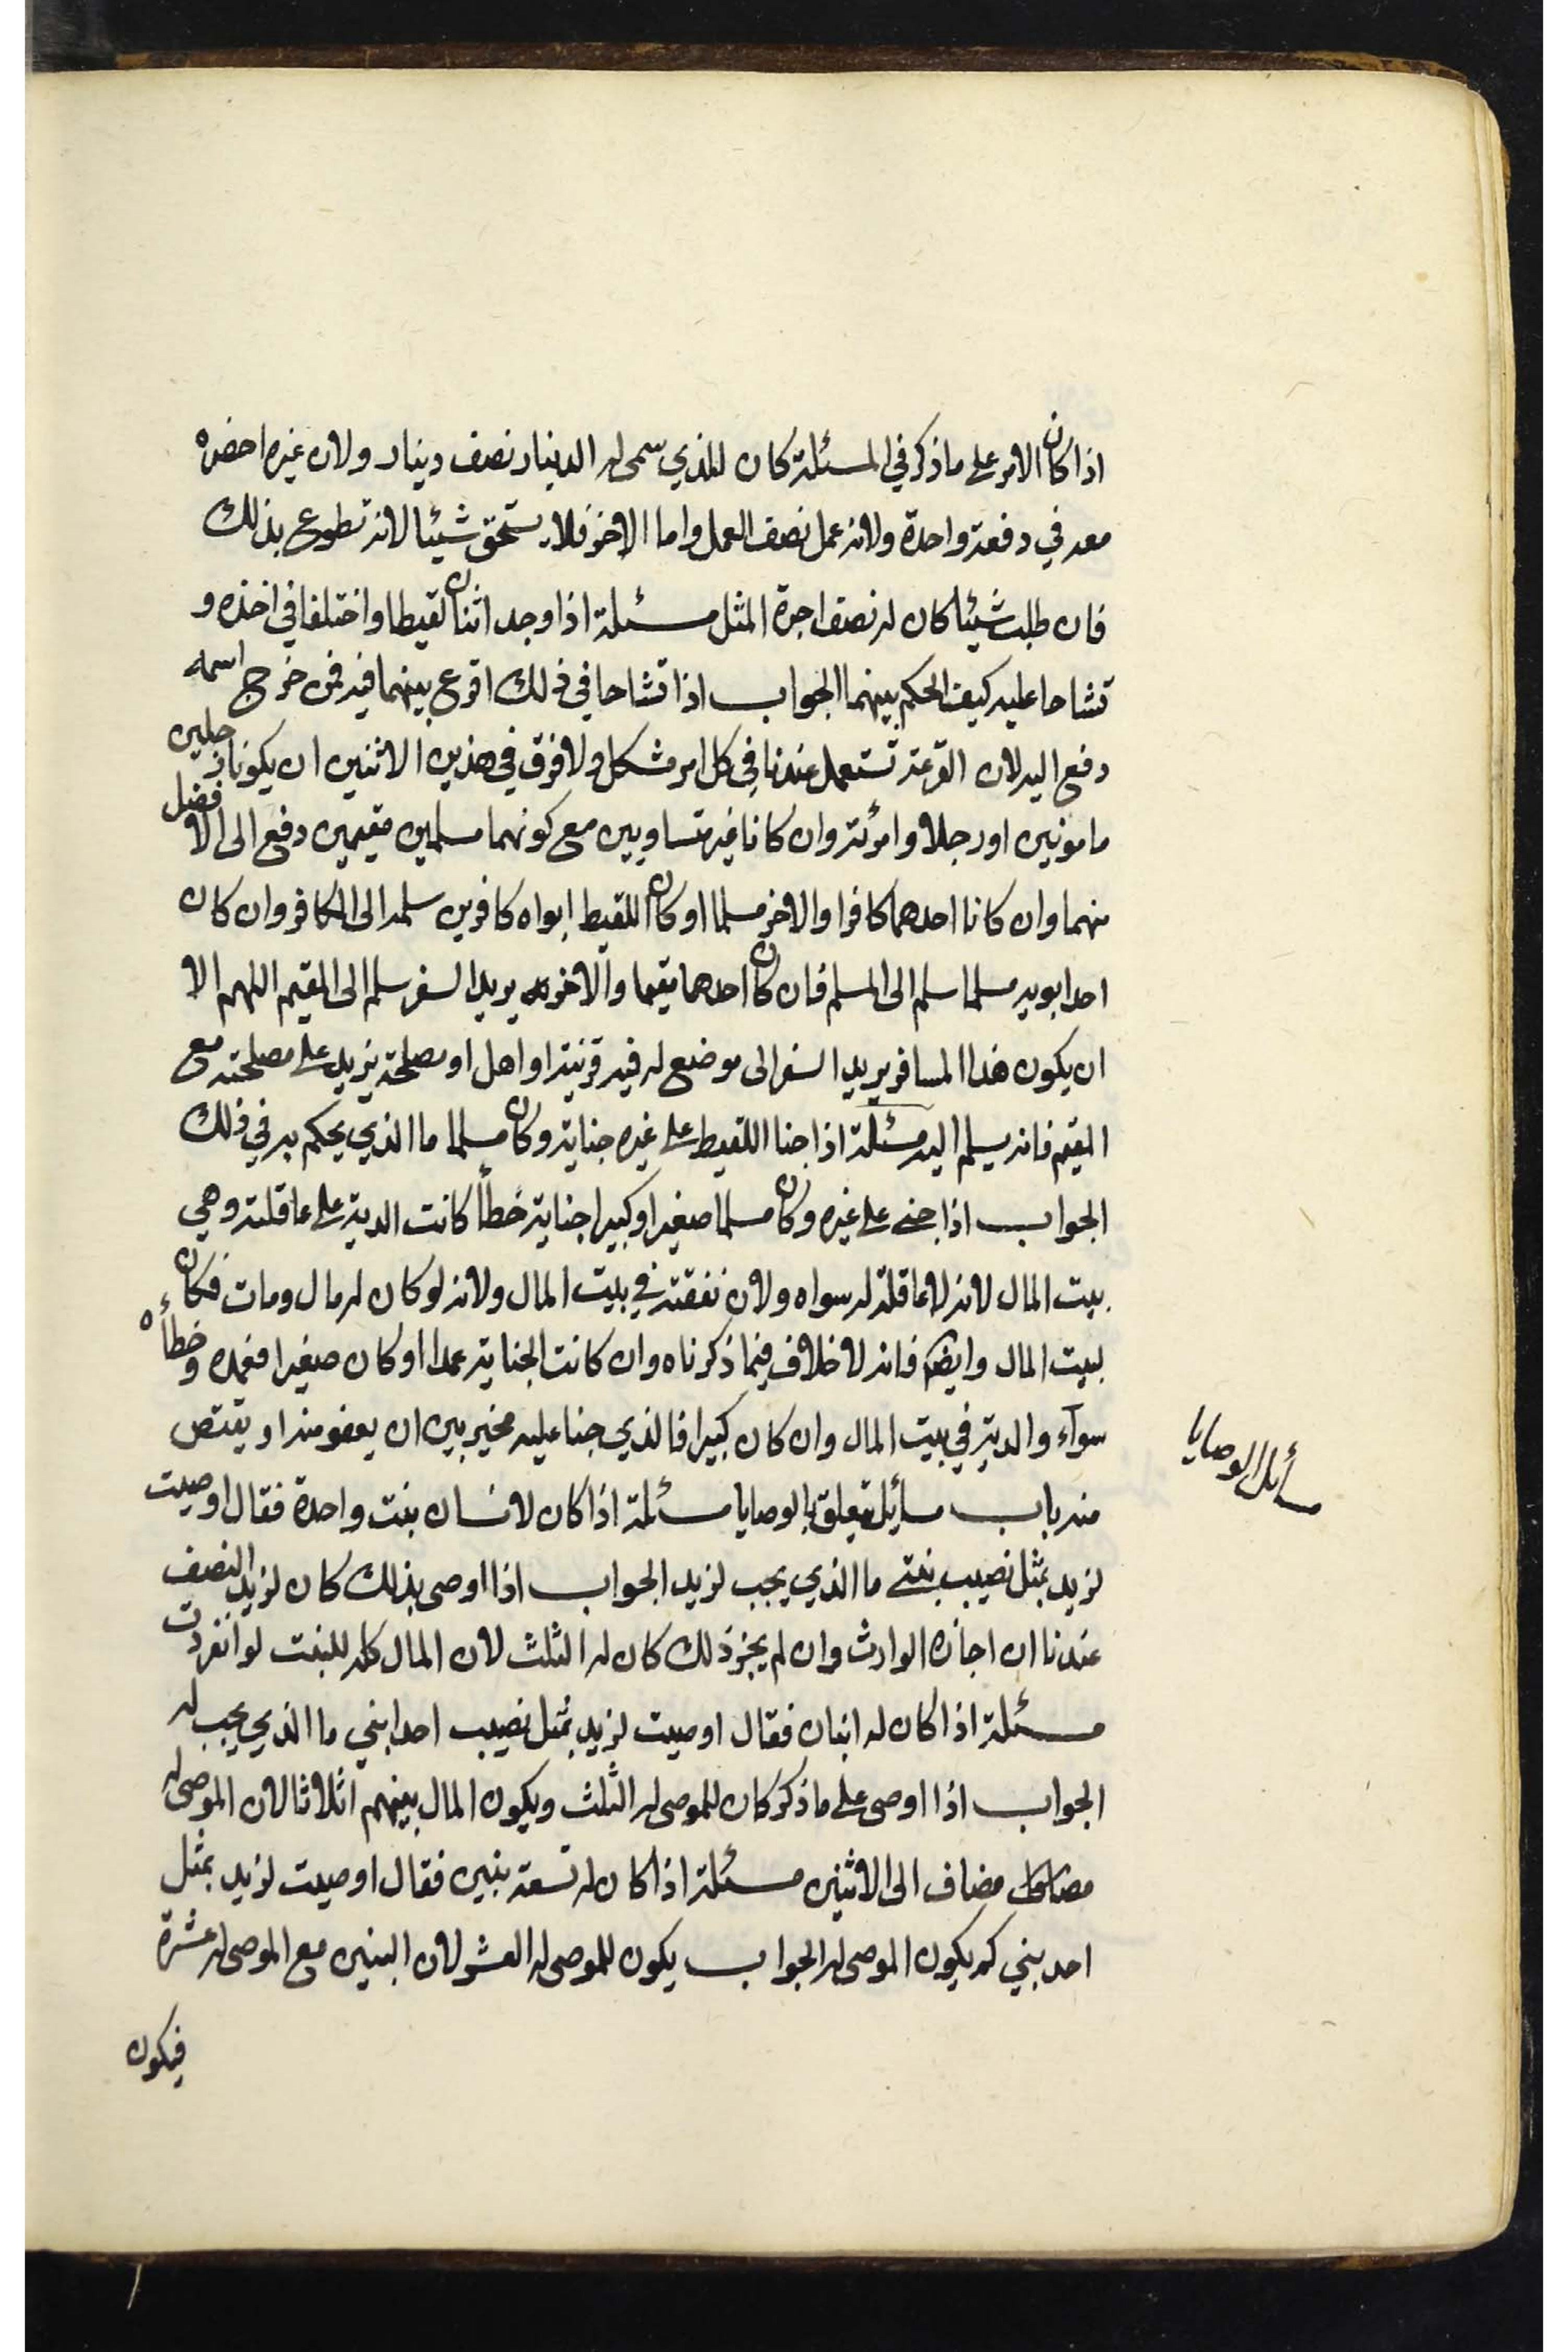 اذا كان الامر على ما ذكر في المسئلة كان للذي سمى له الدينار نصف دينار ولان غيره احضره
معه في دفعة واحدة ولانه عمل نصف العمل واما الاخر فلا يستحق شيئا لانه تطوع بذلك
فان طلب شيئا كان له نصف اجرة المثل مسئلة اذا وجد اثنان لقيطا واختلفا في اخذه و
تشاحا عليه كيف الحكم بينهما الجواب اذا تشاحا في ذلك اقرع بينهما فيه فمن خرج اسمه
دفع اليه لان القرعة تستعمل عندنا في كل امر مشكل ولا فرق في هذين الاثنين ان يكونا رجلين
مامونين او رجلا وامرئة وان كانا غير متساويين مع كونهما مسلمين مقيمين دفع الى الافضل
منهما وان كانا احدهما كافرا والاخر مسلما او كان اللقيط ابواه كافرين سلمه الى الكافر وان كان
احد ابويه مسلما سلم الى المسلم فان كان احدهما مقيما والاخر يريد السفر سلم الى المقيم اللهم الا
ان يكون هذا المسافر يريد السفر الى موضع له فيه قرينة او اهل او مصلحة يزيد على مصلحته مع
المقيم فانه يسلم اليه مسئلة اذا جنا اللقيط على غيره جناية وكان مسلما ما الذي يحكم به في ذلك
الجواب اذا جنى على غيره وكان مسلما صغيرا وكبيرا جناية خطأ كانت الدية على عاقلته وهي
بيت المال لانه لا عاقلة له سواه ولان نفقته في بيت المال ولانه لو كان له مال ومات فكان
لبيت المال وايضا فانه لا خلاف فيما ذكرناه وان كانت الجناية عمدا او كان صغيرا فعمده وخطأه
سوآء والدية في بيت المال وان كان كبيرا فالذي جنا عليه مخير بين ان يعفو منه او يقتص
منه باب مسأيل تتعلق بالوصايا مسئلة اذا كان لانسان بنت واحدة فقال اوصيت
لزيد بمثل نصيب بنتي ما الذي يجب لزيد الجواب اذا اوصى بذلك كان لزيد النصف
عندنا ان اجازه الوارث وان لم يجز ذلك كان له الثلث لان المال كله للبنت لو انفردت
مسئلة اذا كان له ابنان فقال اوصيت لزيد بمثل نصيب احد ابني ما الذي يجب له
الجواب اذا اوصى على ما ذكر كان للموصى له الثلث ويكون المال بينهم اثلاثا لان الموصى له
مضاف الى الاثنين مسئلة اذا كان له تسعة بنين فقال اوصيت لزيد بمثل
احد بني كم يكون الموصى له الجواب يكون للموصى له العشر لان البنين مع الموصى له عشرة
فيكون
مسأئل الوصايا